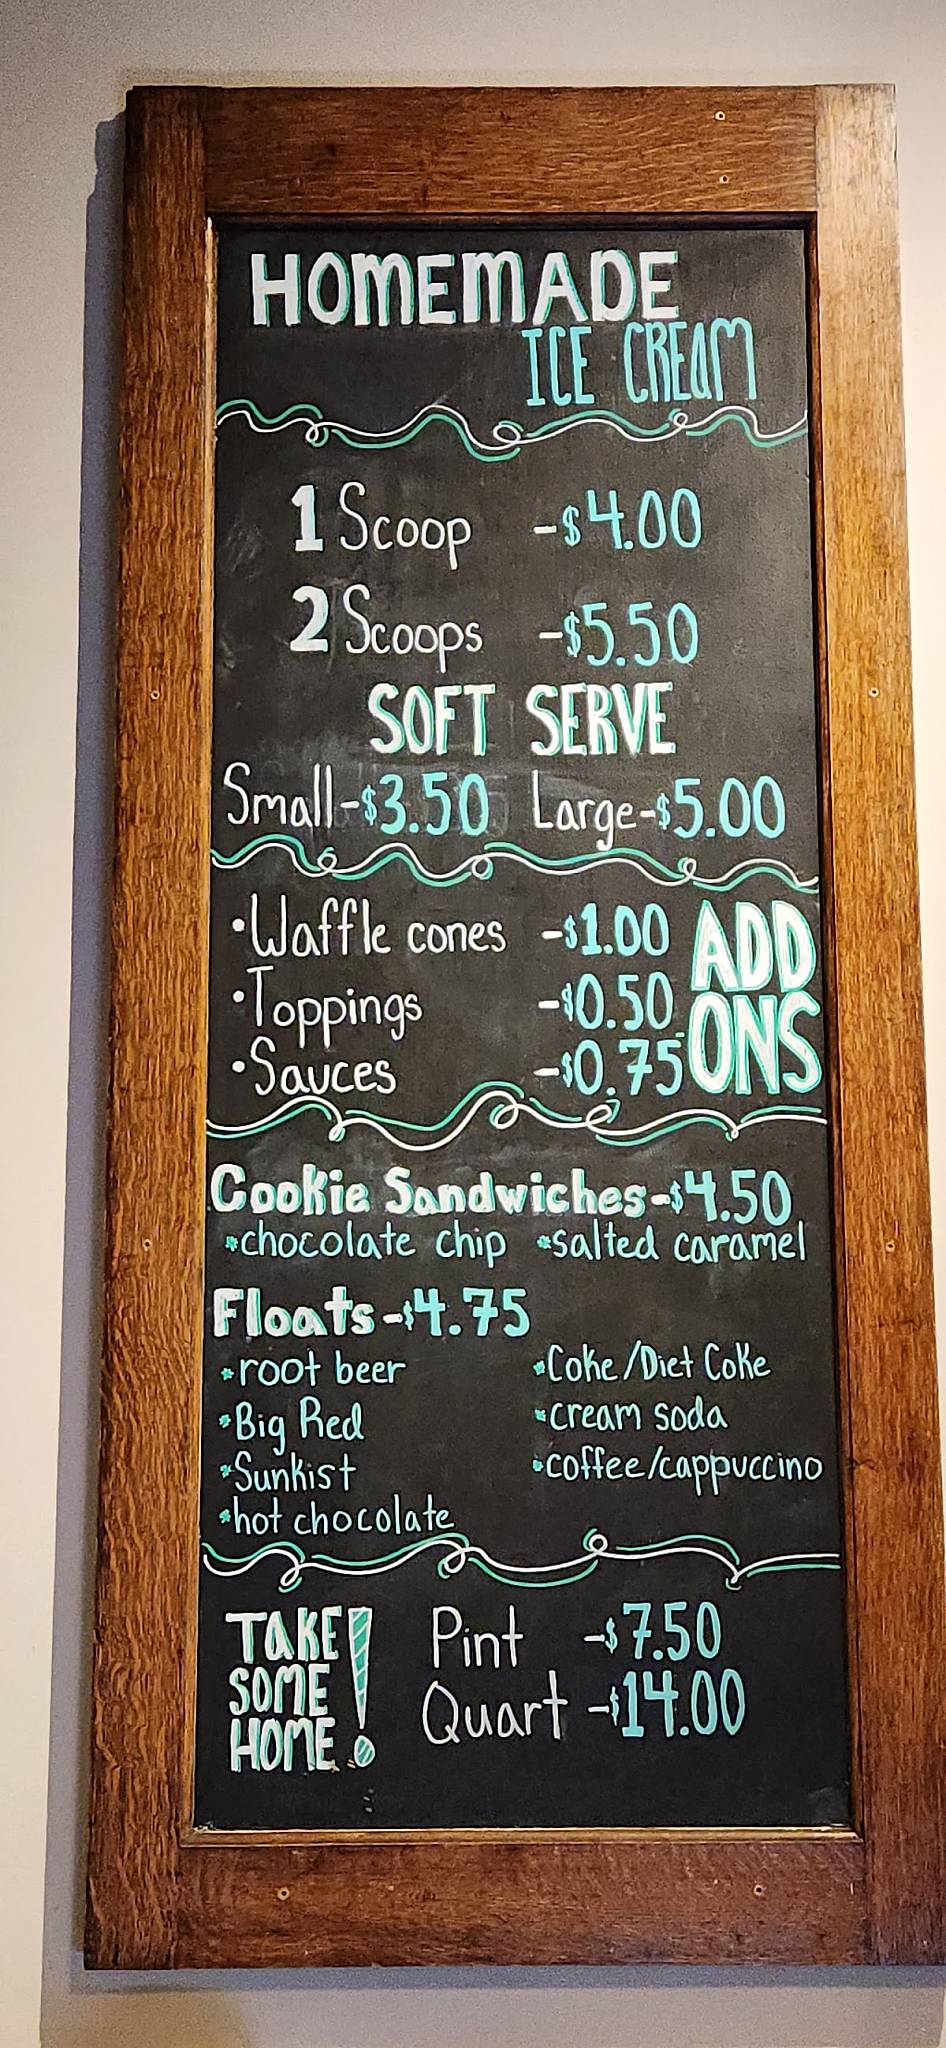 HOMEMADE
ICE CREAM
1 Scoop -$4.00
2 Scoops -$5.50
SOFT SERVE
Small-$3.50 Large-$5.00
•Waffle cones -$1.00
•Toppings -$0.50
•Sauces -$0.75
ADD
ONS
Cookie Sandwiches-$4.50
*chocolate chip *salted caramel
Floats-$4.75
*root beer *Coke/Diet Coke
*Big Red *cream soda
*Sunkist *coffee/cappuccino
*hot chocolate
TAKE
SOME
HOME!
Pint -$7.50
Quart -$14.00